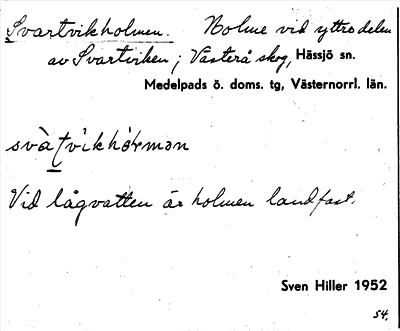 Svartvikholmen. Holme vid yttre delen
av Svartviken; Västerå skog, Hässjö sn.
Medelpads ö. doms. tg, Västernorrl. län.
Vid lågvatten är holmen landfast.
Sven Hiller 1952
54.